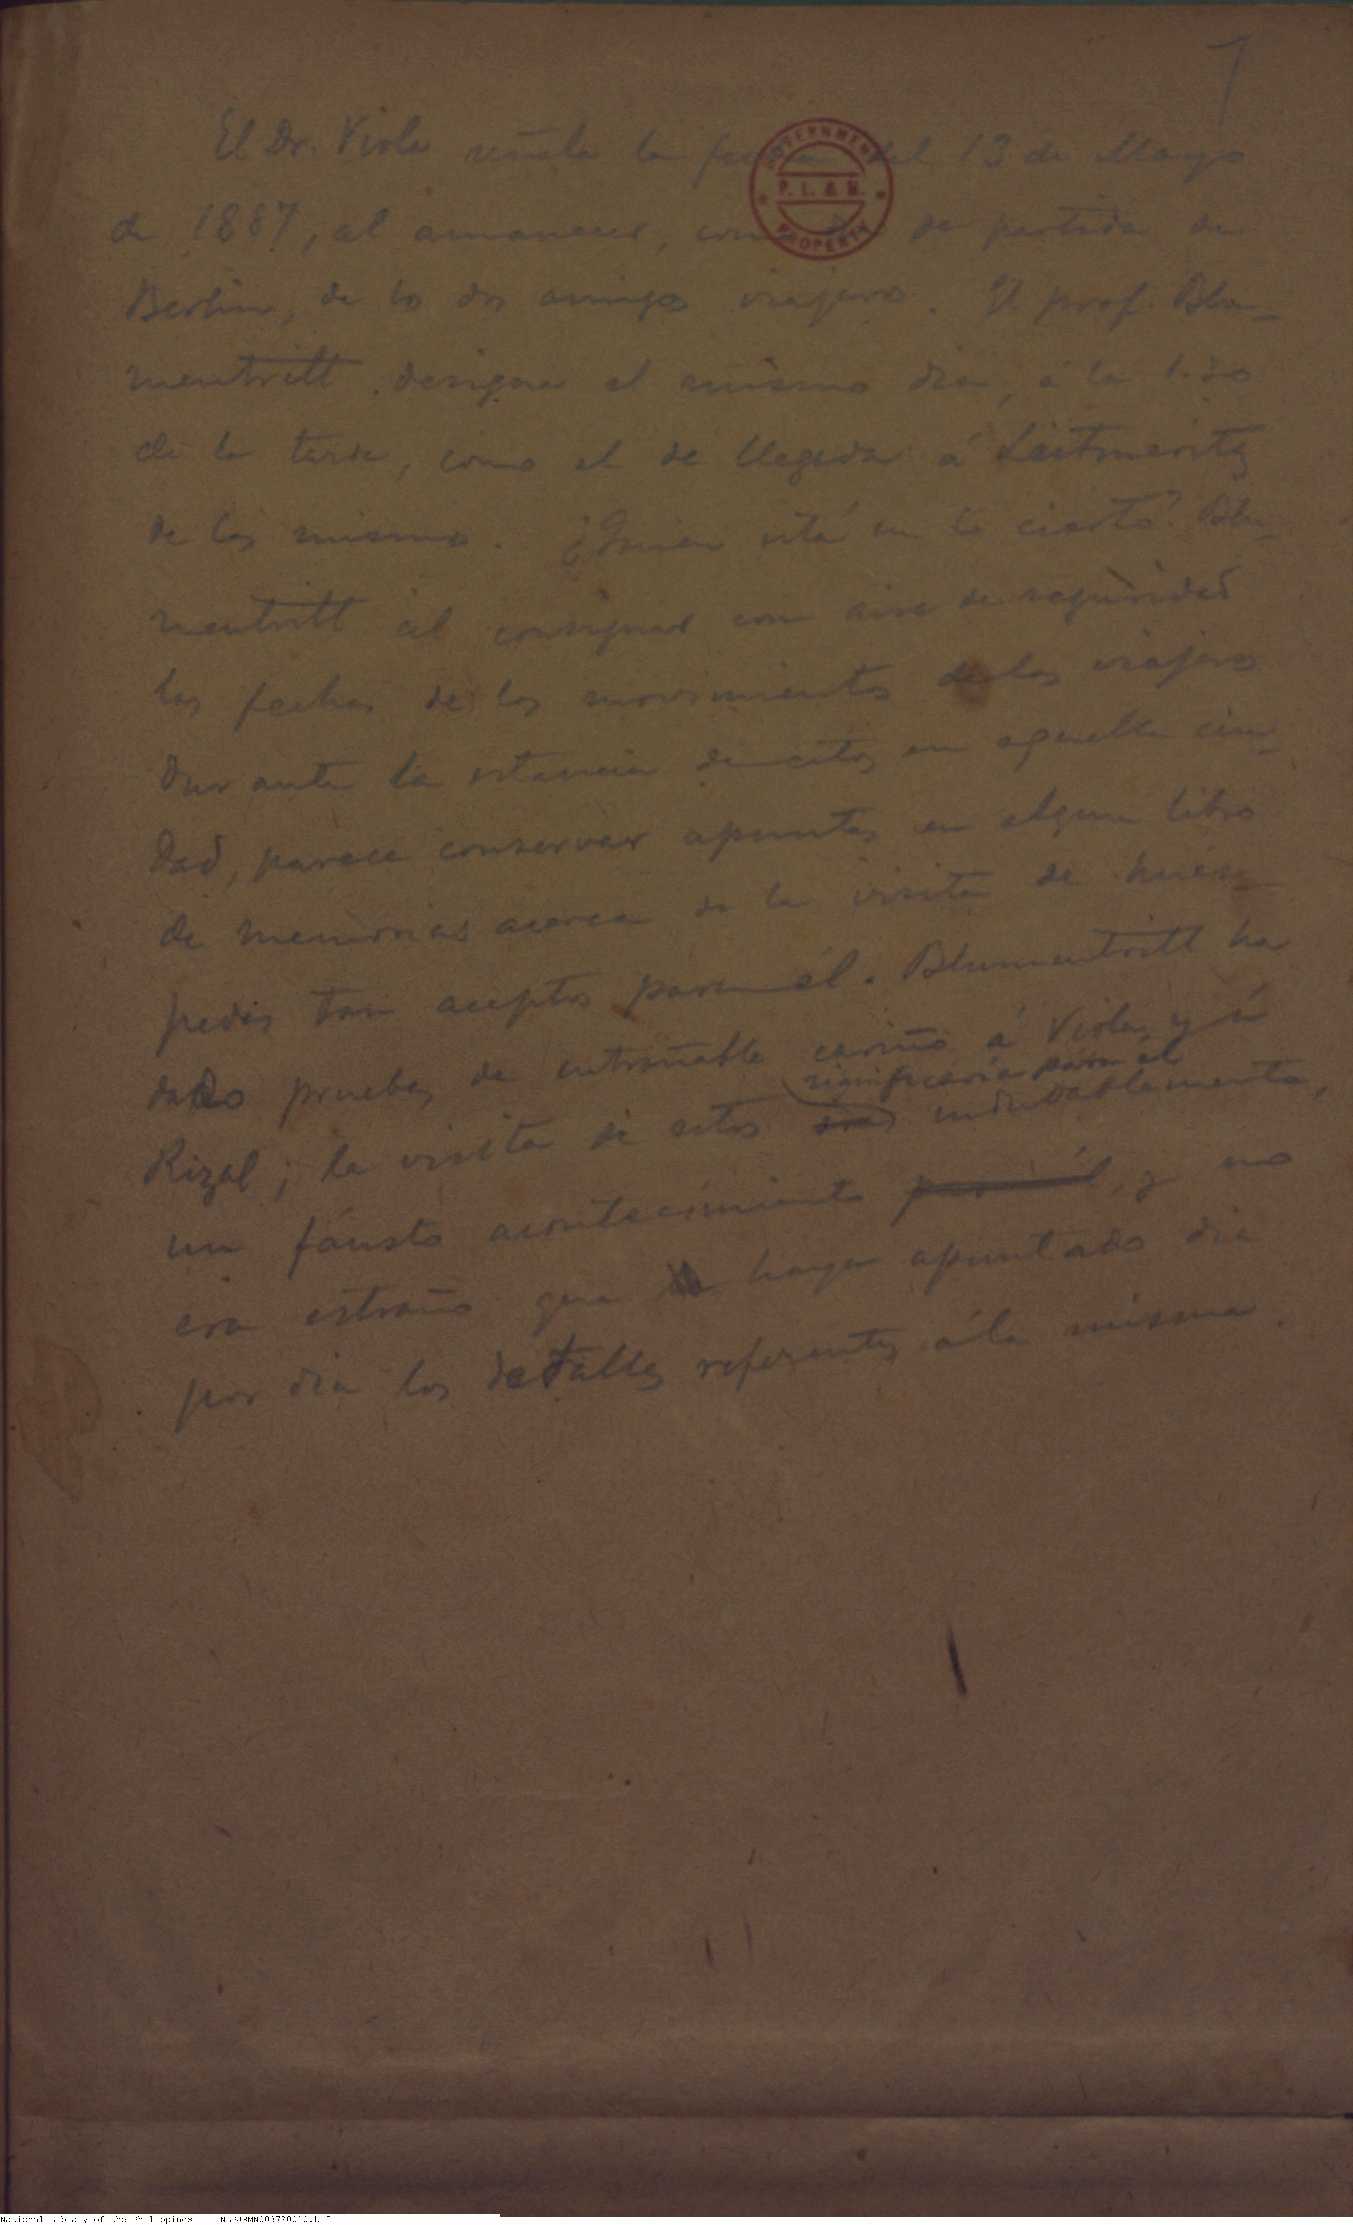 7
El Dr. Viola señala la fecha del 13 de Mayo
de 1887, al amanecer, como de partida de
Berlin, de los dos amigos viajeros. El prof. Blu-
mentritt designa el mismo dia, á la 1.30
de la tarde, como el de llegada á Leitmeritz
de los mismos. ¿Quien está en lo cierto? Blu-
mentritt al consignar con aire de seguridad
las fechas de los movimientos de los viajeros
durante la estancia de estos en aquella ciu-
dad, parece conservar apuntes en algun libro
de memorias acerca de la visita de hués-
pedes tan aceptos para él. Blumentritt ha
dado pruebas de entrañable cariño á Viola y á
significaria para él
Rizal; la visita de estos indudablemente,
un fausto acontecimiento y no
era estraño que haya apuntado dia
por dia los detalles referentes á la misma.
GOVERNMENT
P. L. & M.
PROPERTY
National Library of the Philippines